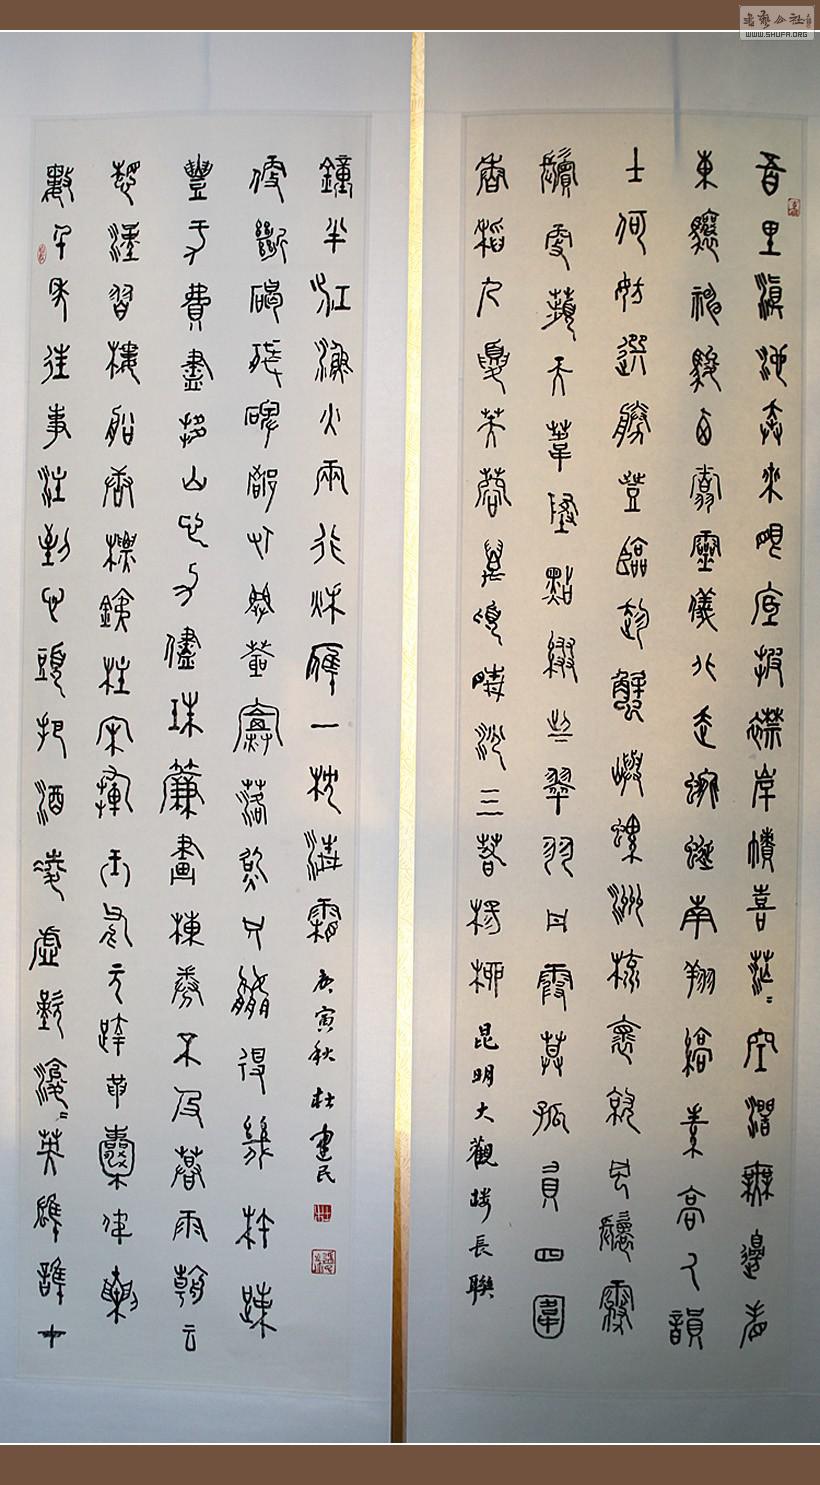 五百里滇池奔來眼底披襟岸幘喜茫茫空闊無邊看
東驤神駿西翥靈儀北走蜿蜒南翔縞素高人韻
士何妨選勝登臨趁蟹嶼螺洲梳裹就風鬟霧
鬢更蘋天葦地點綴些翠羽丹霞莫孤負四圍
香稻九夏芙蓉萬頃晴沙三春楊柳昆明大觀樓長聯
數千年往事注到心頭把酒凌虛歎滾滾英雄誰在
想漢習樓船唐標鐵柱宋揮玉斧元跨革囊偉烈
豐功費盡移山心力儘珠簾畫棟卷不及暮雨朝云
便斷碣殘碑都付與蒼煙落照只贏得幾杵疎
鐘半江漁火兩行秋雁一枕清霜庚寅秋杜建民
書藝公社
WWW.SHUFA.ORG